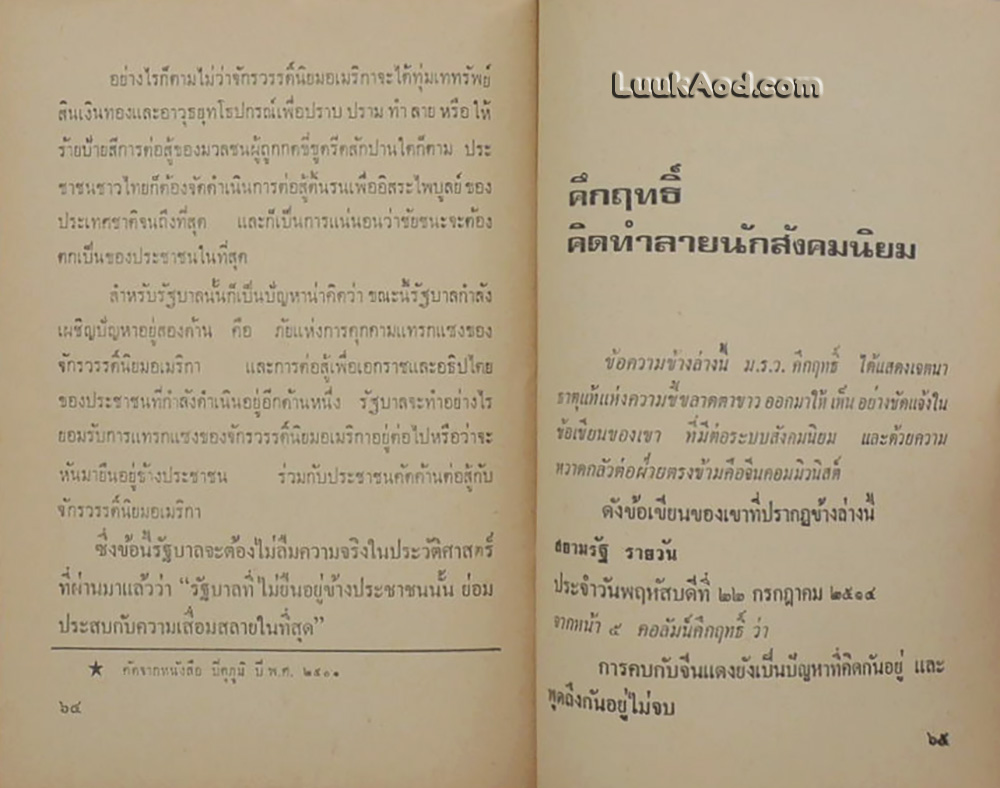 อย่างไรก็ตามไม่ว่าจักรวรรดิ์นิยมอเมริกาจะได้ทุ่มเททรัพย์
สินเงินทองและอาวุธยุทโธปกรณ์เพื่อปราบ ปราม ทำ ลาย หรือ ให้
ร้ายป้ายสีการต่อสู้ของมวลชนผู้ถูกกดขี่ขูดรีดสักปานใดก็ตาม ประ
ชาชนชาวไทยก็ต้องจัดดำเนินการต่อสู้ดิ้นรนเพื่ออิสระไพบูลย์ของ
ประเทศชาติจนถึงที่สุด และก็เป็นการแน่นอนว่าชัยชนะจะต้อง
ตกเป็นของประชาชนในที่สุด
สำหรับรัฐบาลนั้นก็เป็นปัญหาน่าคิดว่า ขณะนี้รัฐบาลกำลัง
เผชิญปัญหาอยู่สองด้าน คือ ภัยแห่งการคุกคามแทรกแซงของ
จักรวรรดิ์นิยมอเมริกา และการต่อสู้เพื่อเอกราชและอธิปไตย
ของประชาชนที่กำลังดำเนินอยู่อีกด้านหนึ่ง รัฐบาลจะทำอย่างไร
ยอมรับการแทรกแซงของจักรวรรดิ์นิยมอเมริกาอยู่ต่อไปหรือว่าจะ
หันมายืนอยู่ข้างประชาชน ร่วมกับประชาชนคัดค้านต่อสู้กับ
จักรวรรดิ์นิยมอเมริกา
ซึ่งข้อนี้รัฐบาลจะต้องไม่ลืมความจริงในประวัติศาสตร์
ที่ผ่านมาแล้วว่า “รัฐบาลที่ ไม่ยืนอยู่ข้างประชาชนนั้น ย่อม
ประสบกับความเสื่อมสลายในที่สุด”
★ คัดจากหนังสือ ปิตุภูมิ ปี พ.ศ. ๒๕๐๑
๖๔
LuukAod.com
คึกฤทธิ์
คิดทำลายนักสังคมนิยม
ข้อความข้างล่างนี้ ม.ร.ว. คึกฤทธิ์ ได้แสดงเจตนา
ธาตุแท้แห่งความขี้ขลาดตาขาว ออกมาให้ เห็น อย่างชัดแจ้งใน
ข้อเขียนของเขา ที่มีต่อระบบสังคมนิยม และด้วยความ
หวาดกลัวต่อฝ่ายตรงข้ามคือจีนคอมมิวนิสต์
ดังข้อเขียนของเขาที่ปรากฏข้างล่างนี้
สยามรัฐ รายวัน
ประจำวันพฤหัสบดีที่ ๒๒ กรกฎาคม ๒๕๑๔
จากหน้า ๕ คอลัมน์คึกฤทธิ์ ว่า
การคบกับจีนแดงยังเป็นปัญหาที่คิดกันอยู่ และ
พูดถึงกันอยู่ไม่จบ
๖๕